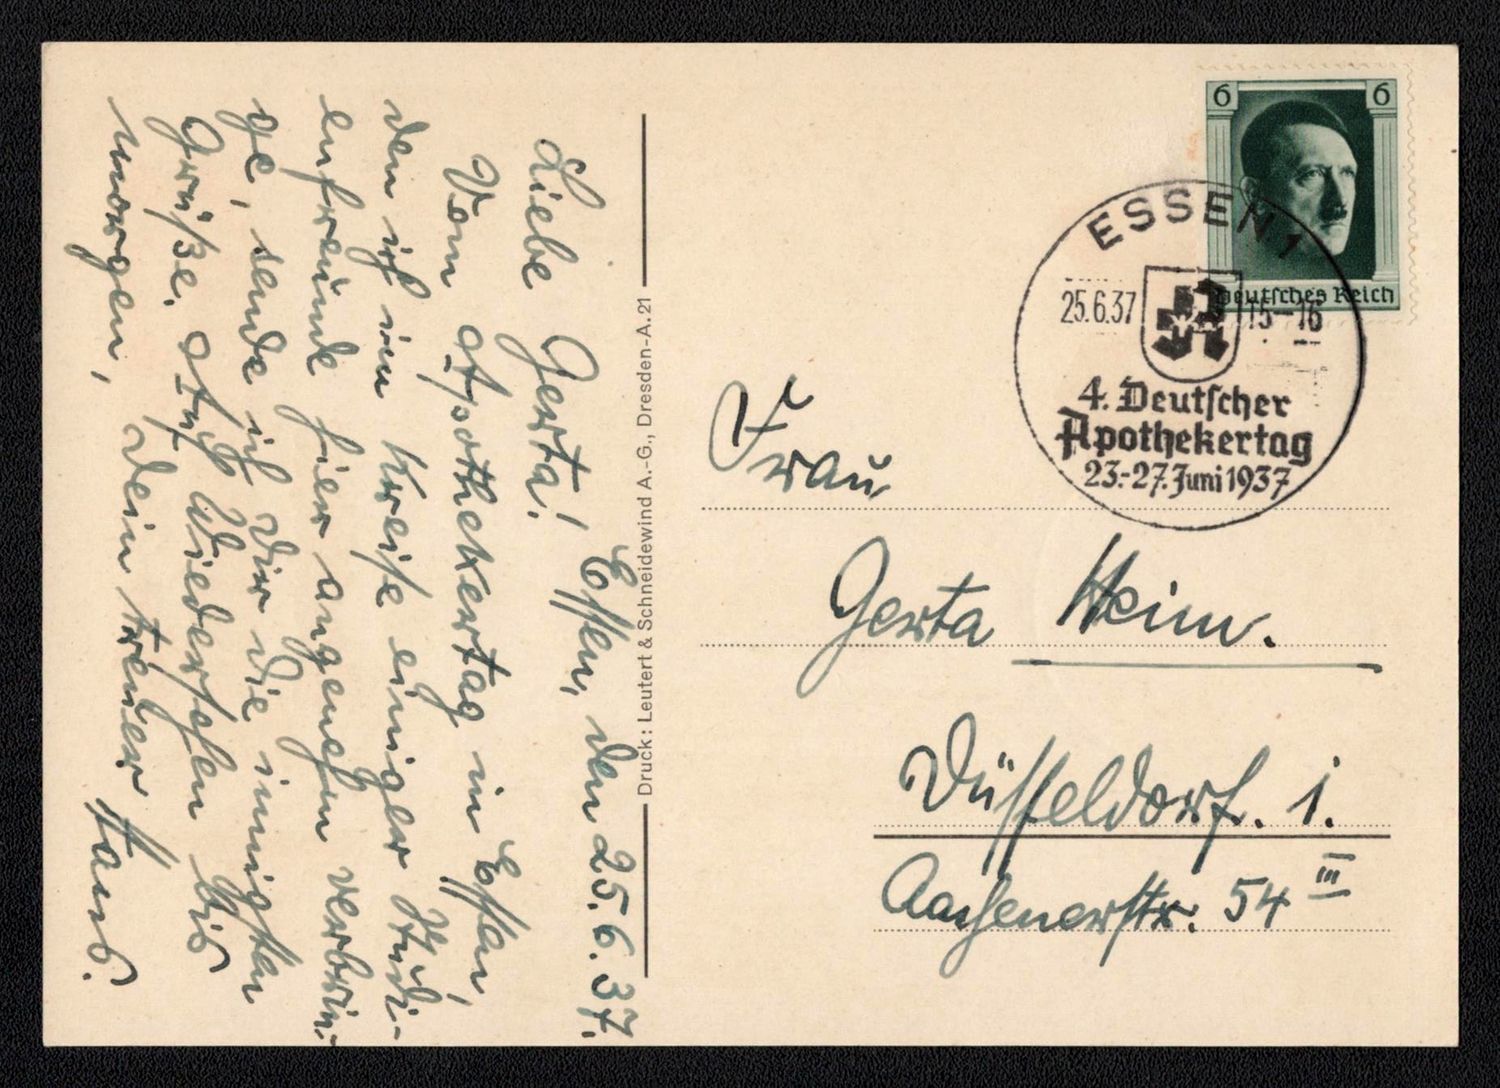 Essen, den 25.6.37.
Liebe Gerta!
Vom Apothekertag in Essen,
den ich im Kreise einiger Studi-
enfreunde hier angenehm verbrin-
ge, sende ich Dir die innigsten
Grüße. Auf Wiedersehen bis
morgen, Dein treuer Hans.
Druck: Leutert & Schneidewind A.-G., Dresden-A. 21
6 6
Deutsches Reich
ESSEN 1
25.6.37 15–16
4. Deutscher
Apothekertag
23.-27. Juni 1937
Frau
Gerta
Düsseldorf. 1.
Aachenerstr. 54 III